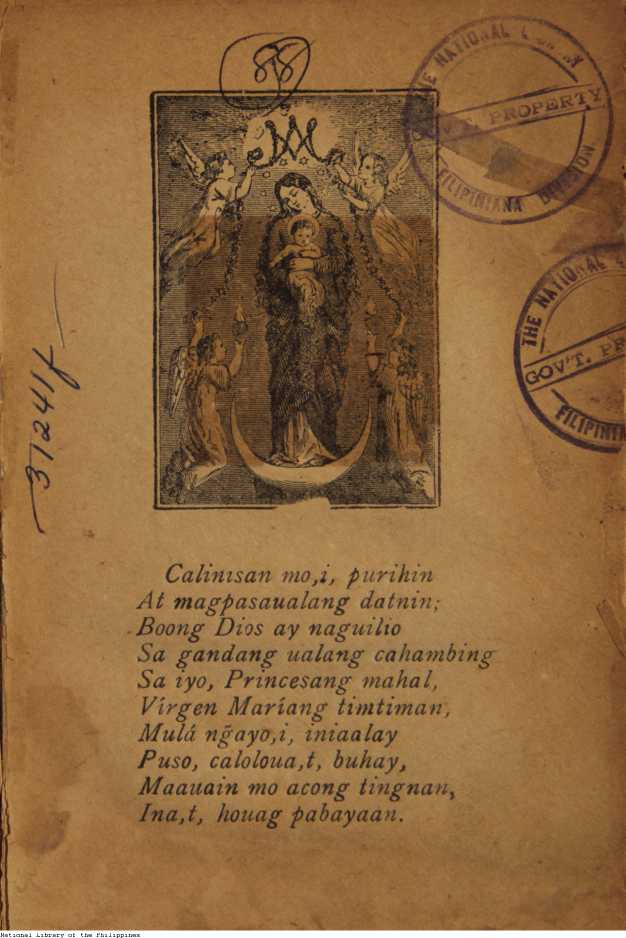 88
THE NATIONAL
GOV'T. PROPERTY
FILIPINIANA DIVISION
THE NATIONAL
GOV'T. PR
FILIPINIA
37241f
Calinisan mo,i, purihin
At magpasaualang datnin;
Boong Dios ay naguilio
Sa gandang ualang cahambing
Sa iyo, Princesang mahal,
Vírgen Maríang timtiman,
Mulá ng̃ayo,i, iniaalay
Puso, caloloua,t, buhay,
Maauain mo acong tingnan,
Ina,t, houag pabayaan.
National Library of the Philippines